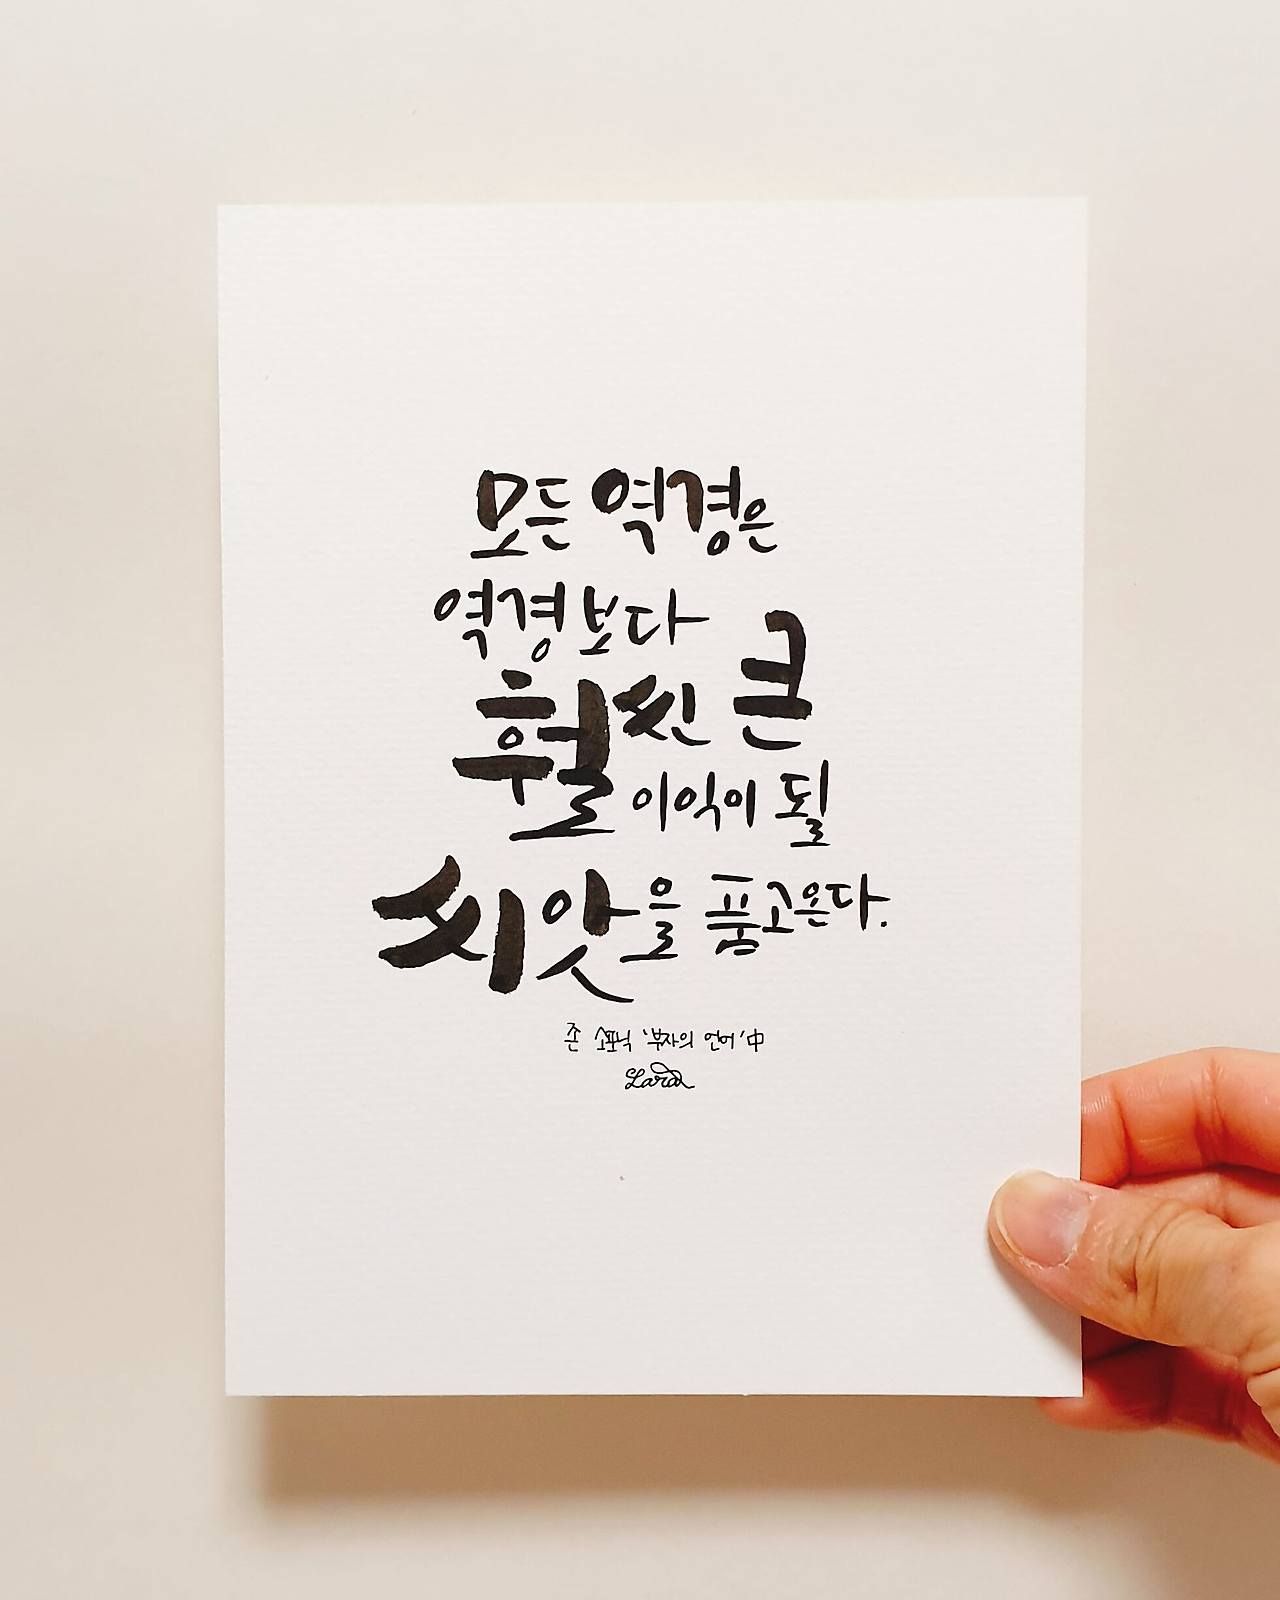 모든 역경은
역경보다
훨씬 큰
이익이 될
씨앗을 품고온다.
존 소포닉 '부자의 언어' 中
Lara